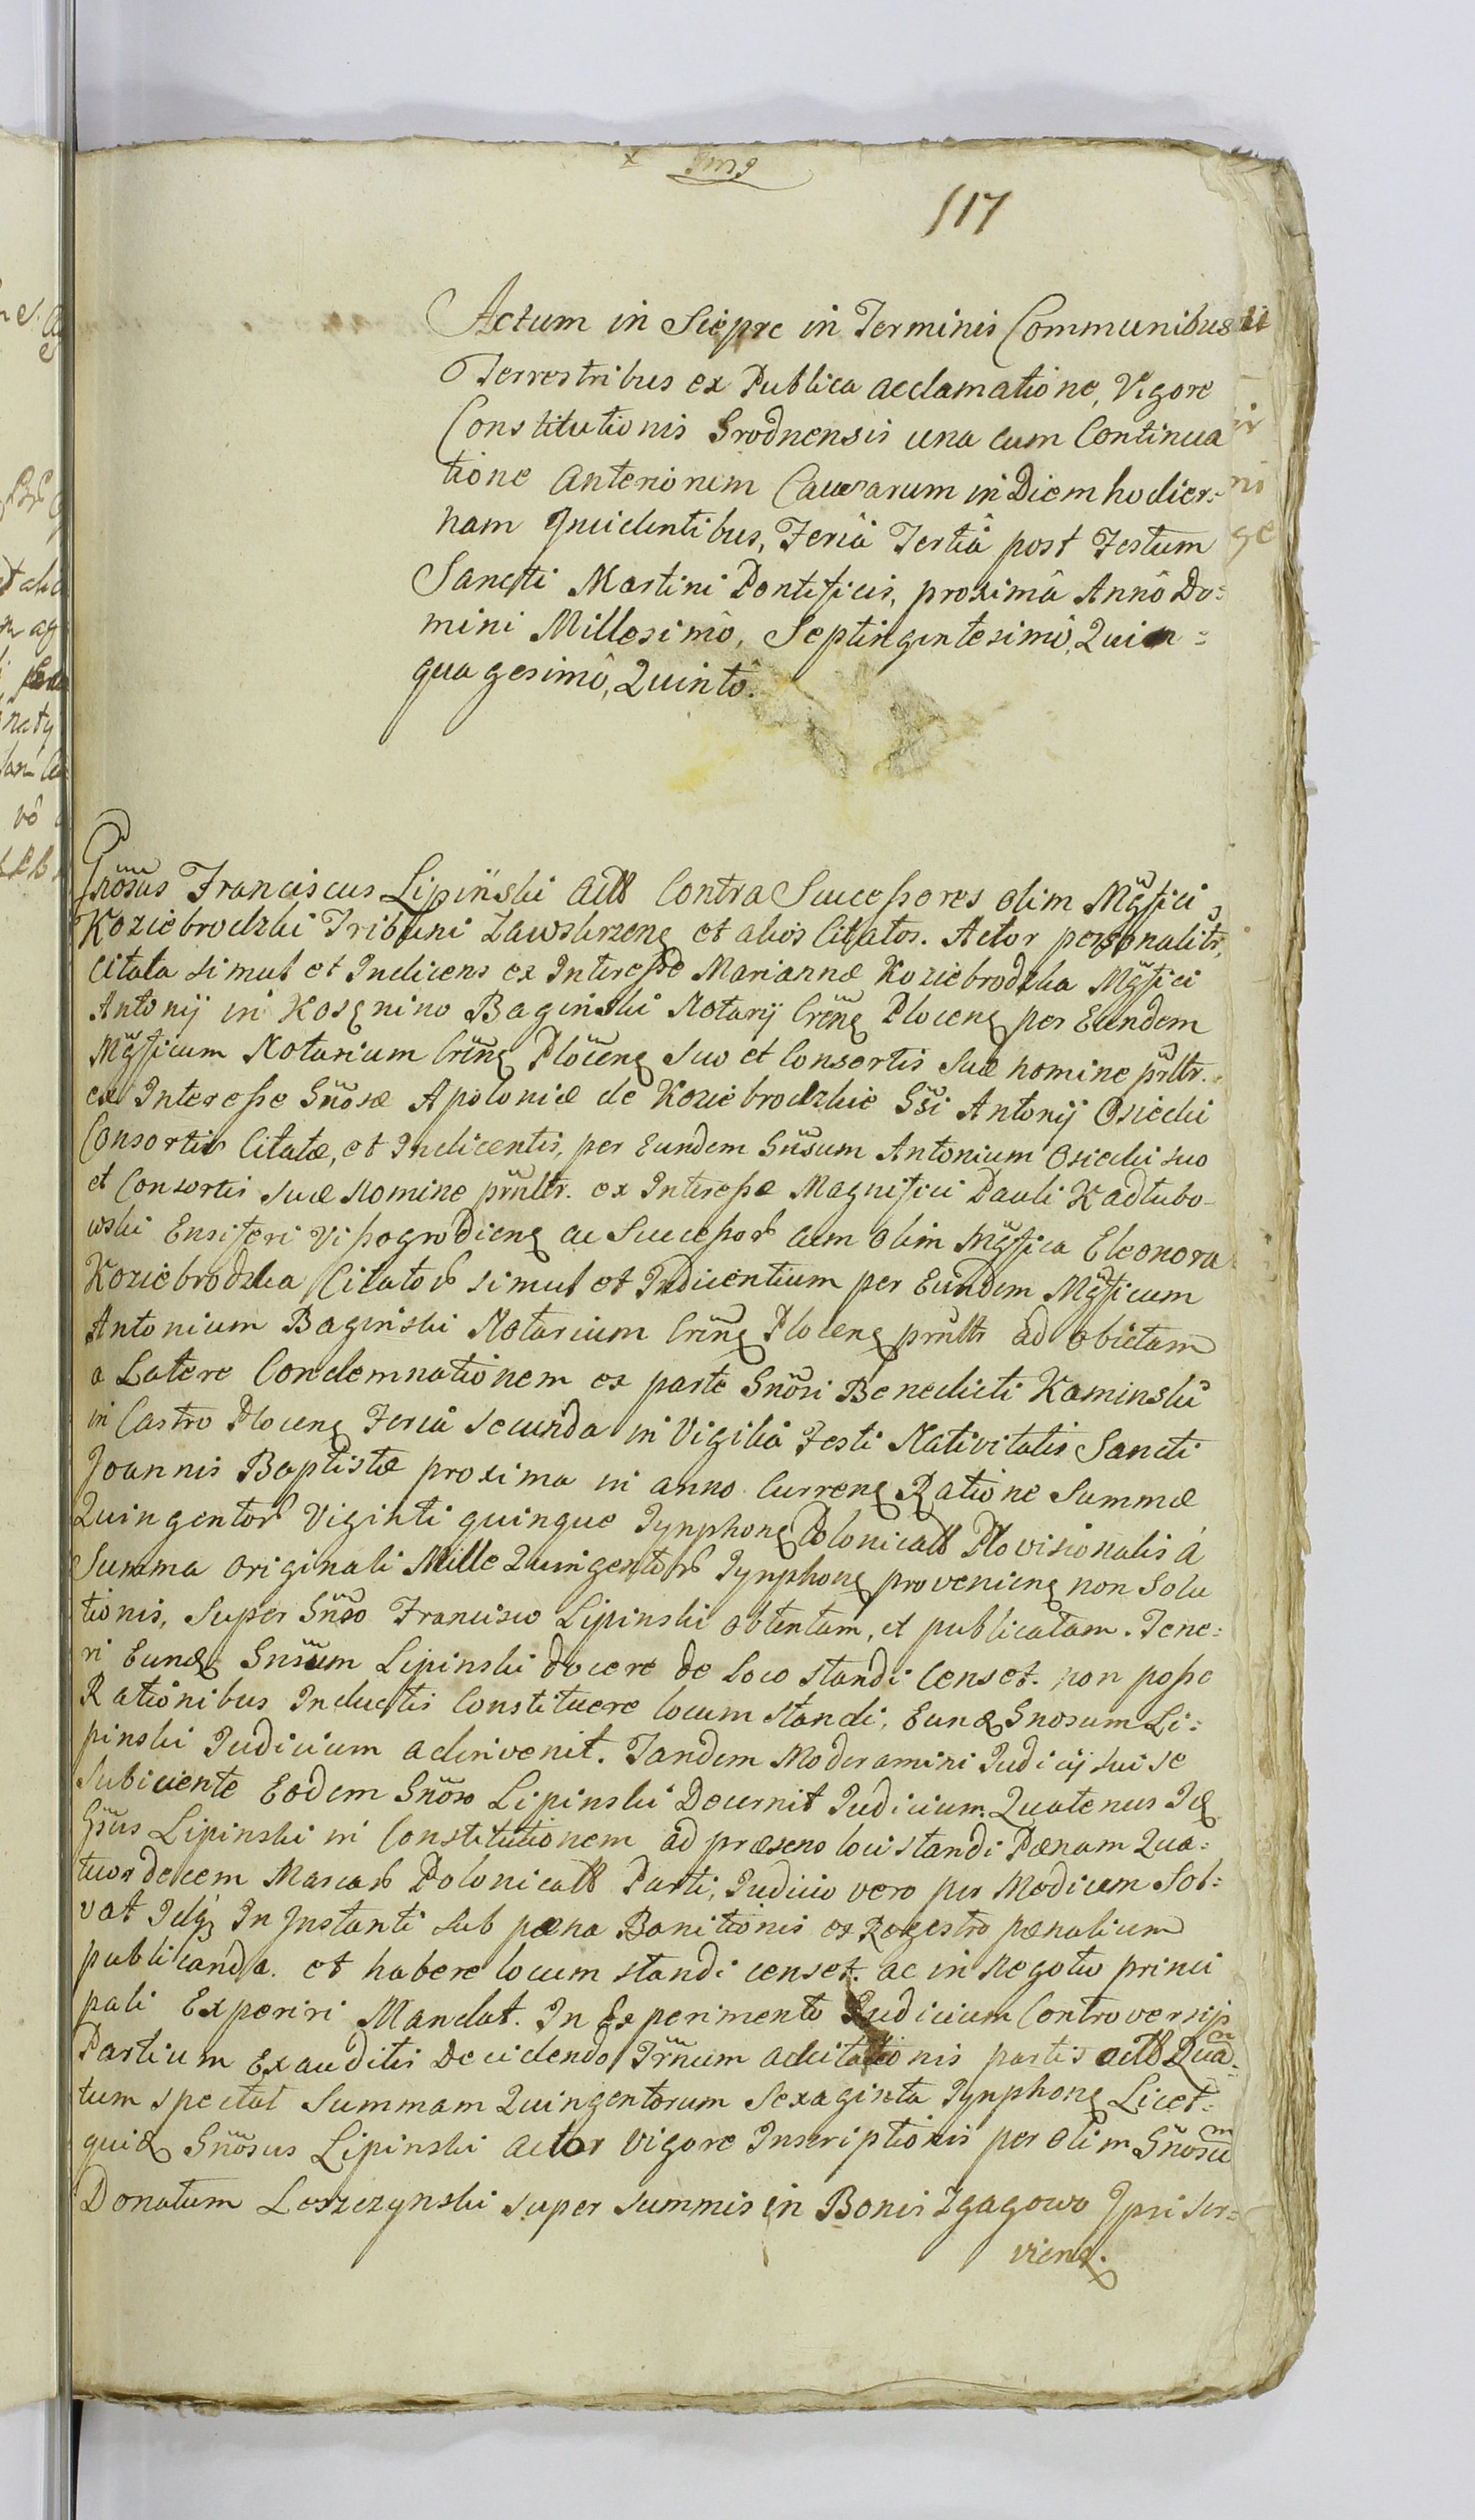 117
Actum in Siepre in Terminis Communibus
Terrestribus ex Publica acclamatione, Vigore
Constitutionis Grodnensis una cum Continua
tione Anteriorum Causarum in Diem hodier=
nam Incidentibus, Feriâ Tertiâ post Festum
Sancti Martini Pontificis, proximâ Annô Do=
mini Millesimô, Septingentesimô, Quin=
quagesimô, Quintô.
Gnosus Franciscus Lipinski Act Contra Successores olim Mgfici
Koziebrodzki Tribuni Zawskrzen et alios Citatos. Actor personalitr,
Citata simul et Indicens ex Interesse Mariannæ Koziebrodzka Mgfici
Antonij in Kosenino Baginski Notarij Cren Plocen per Eundem
Mgficum Notarium Cren Plocen suo et Consortis suæ nomine prltr.
ex Interesse Gnosæ Apoloniæ de Koziebrodzkie Gsi Antonij Osiecki
Consortis Citatæ, et Indicentis, per Eundem Gnosum Antonium Osiecki suo
et Consortis suæ Nomine prnltr. ex Interesse Magnifici Pauli Kadlubo-
wski Ensiferi Vissogrodien ac Successor cum olim Mgfica Eleonora
Koziebrodzka Citator simul et Indicentium per Eundem Mgficum
Antonium Baginski Notarium Cren Plocen prnltr ad obictam
a Latere Condemnationem ex parte Gnosi Benedicti Kaminski
in Castro Plocen Feria secunda in Vigilia Festi Nativitatis Sancti
Joannis Baptistæ proxima in anno Curren Ratione Summæ
Quingentor Viginti quinque Tynphon Polonicall Provisionalis à
Summa originali Mille Quingentor Tynphon provenien non Solu
tionis, super Gnoso Francisco Lipinski obtentam, et publicatam. Tene=
ri Eund Gnsum Lipinski docere de loco standi Censet. non posse
Rationibus Inductis Constituere locum standi, Eund Gnosum Li=
pinski Judicium adinvenit. Tandem Moderamini Judicij sui se
Subiiciente Eodem Gnoso Lipinski Decernit Judicium. Quatenus Id
Gsus Lipinski in Constitutionem ad præsens loci standi Pænam Qua=
tuordecem Marcar Polonicall Parti, Judicio vero per Modicum Sol=
vat Idq In Instanti sub pæna Banitionis ex Regestro pænalium
publicanda. et habere locum standi censet. ac in Negotio princi
pali Experiri Mandat. In Experimento Judicium Controversijs
Partium Exauditis Decidendo Trnum adcitationis partis act Quan=
tum spectat Summam Quingentorum Sexaginta Tynphon Licet=
quid Gnosus Lipinski actor vigore Inscriptionis per olim Gnosum
Donatum Leszczynski super summis in Bonis Zgagowo Ipsi ser=
vien.